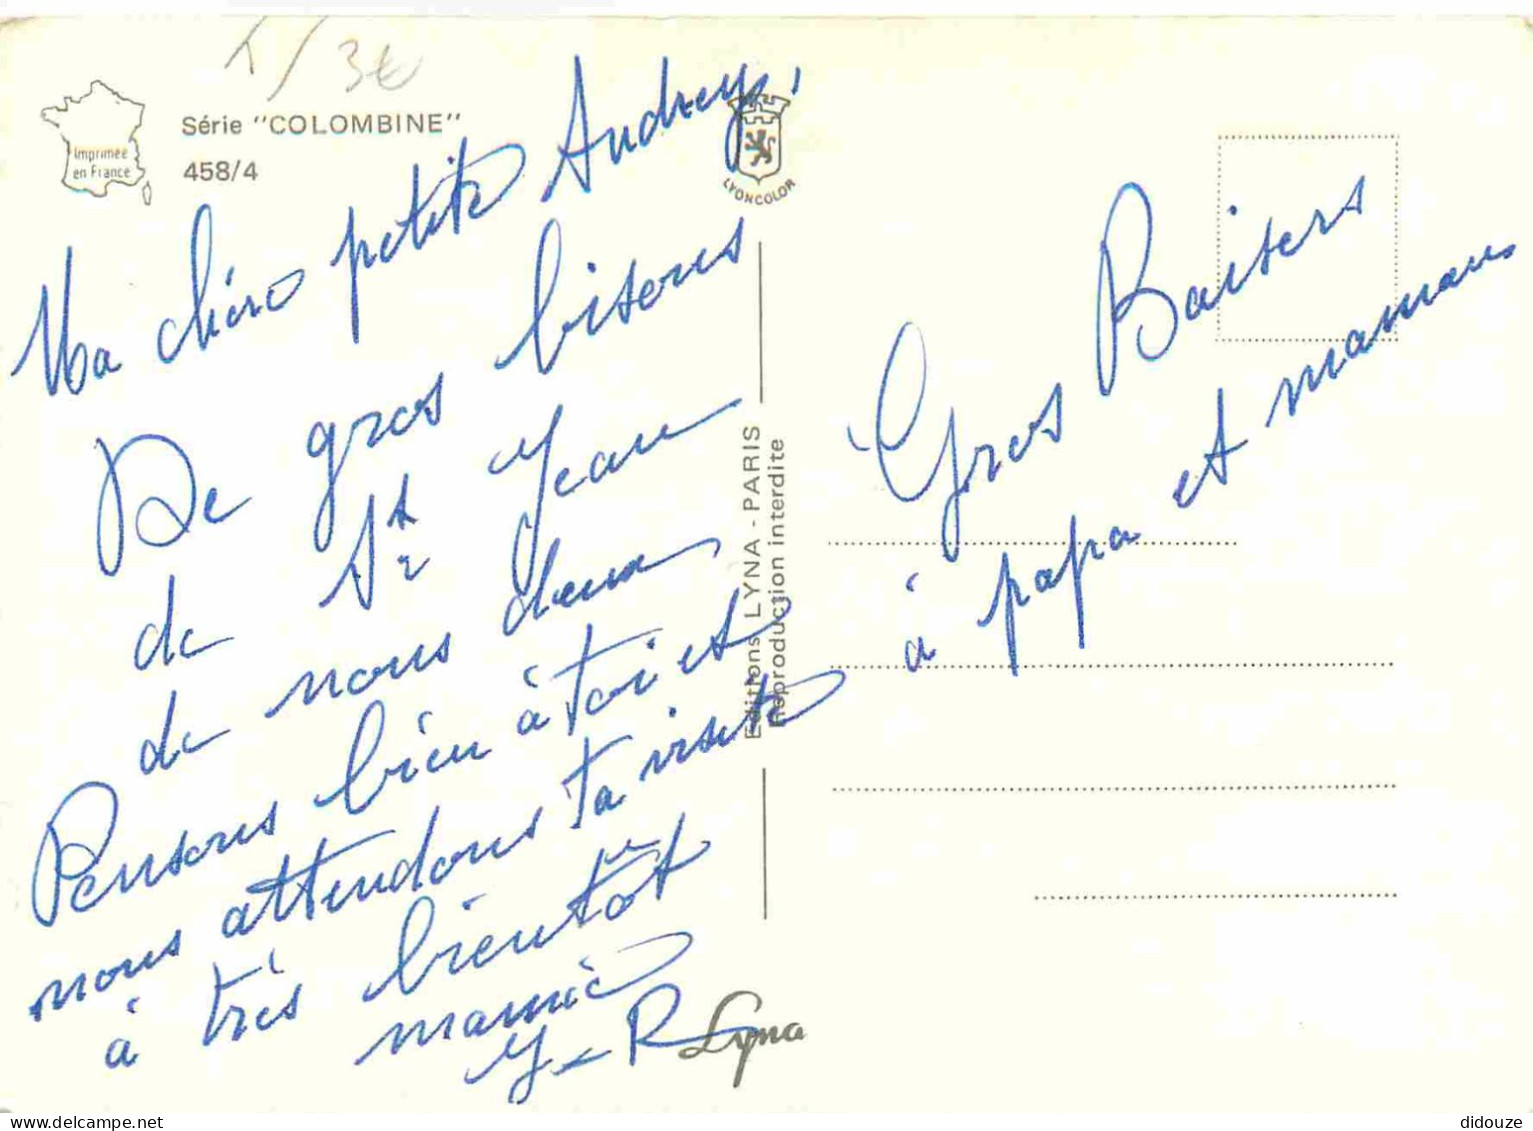 1/3€
Imprimée
en France
Série "COLOMBINE"
458/4
LYONCOLOR
Ma chère petite Audrey,
De gros bisous
de St Jean
de nous deux
Pensons bien à toi et
nous attendons ta visite
à très bientôt
mamie
Y-R
Editions LYNA - PARIS
Reproduction interdite
Lyna
Gros Baisers
à papa et maman
didouze